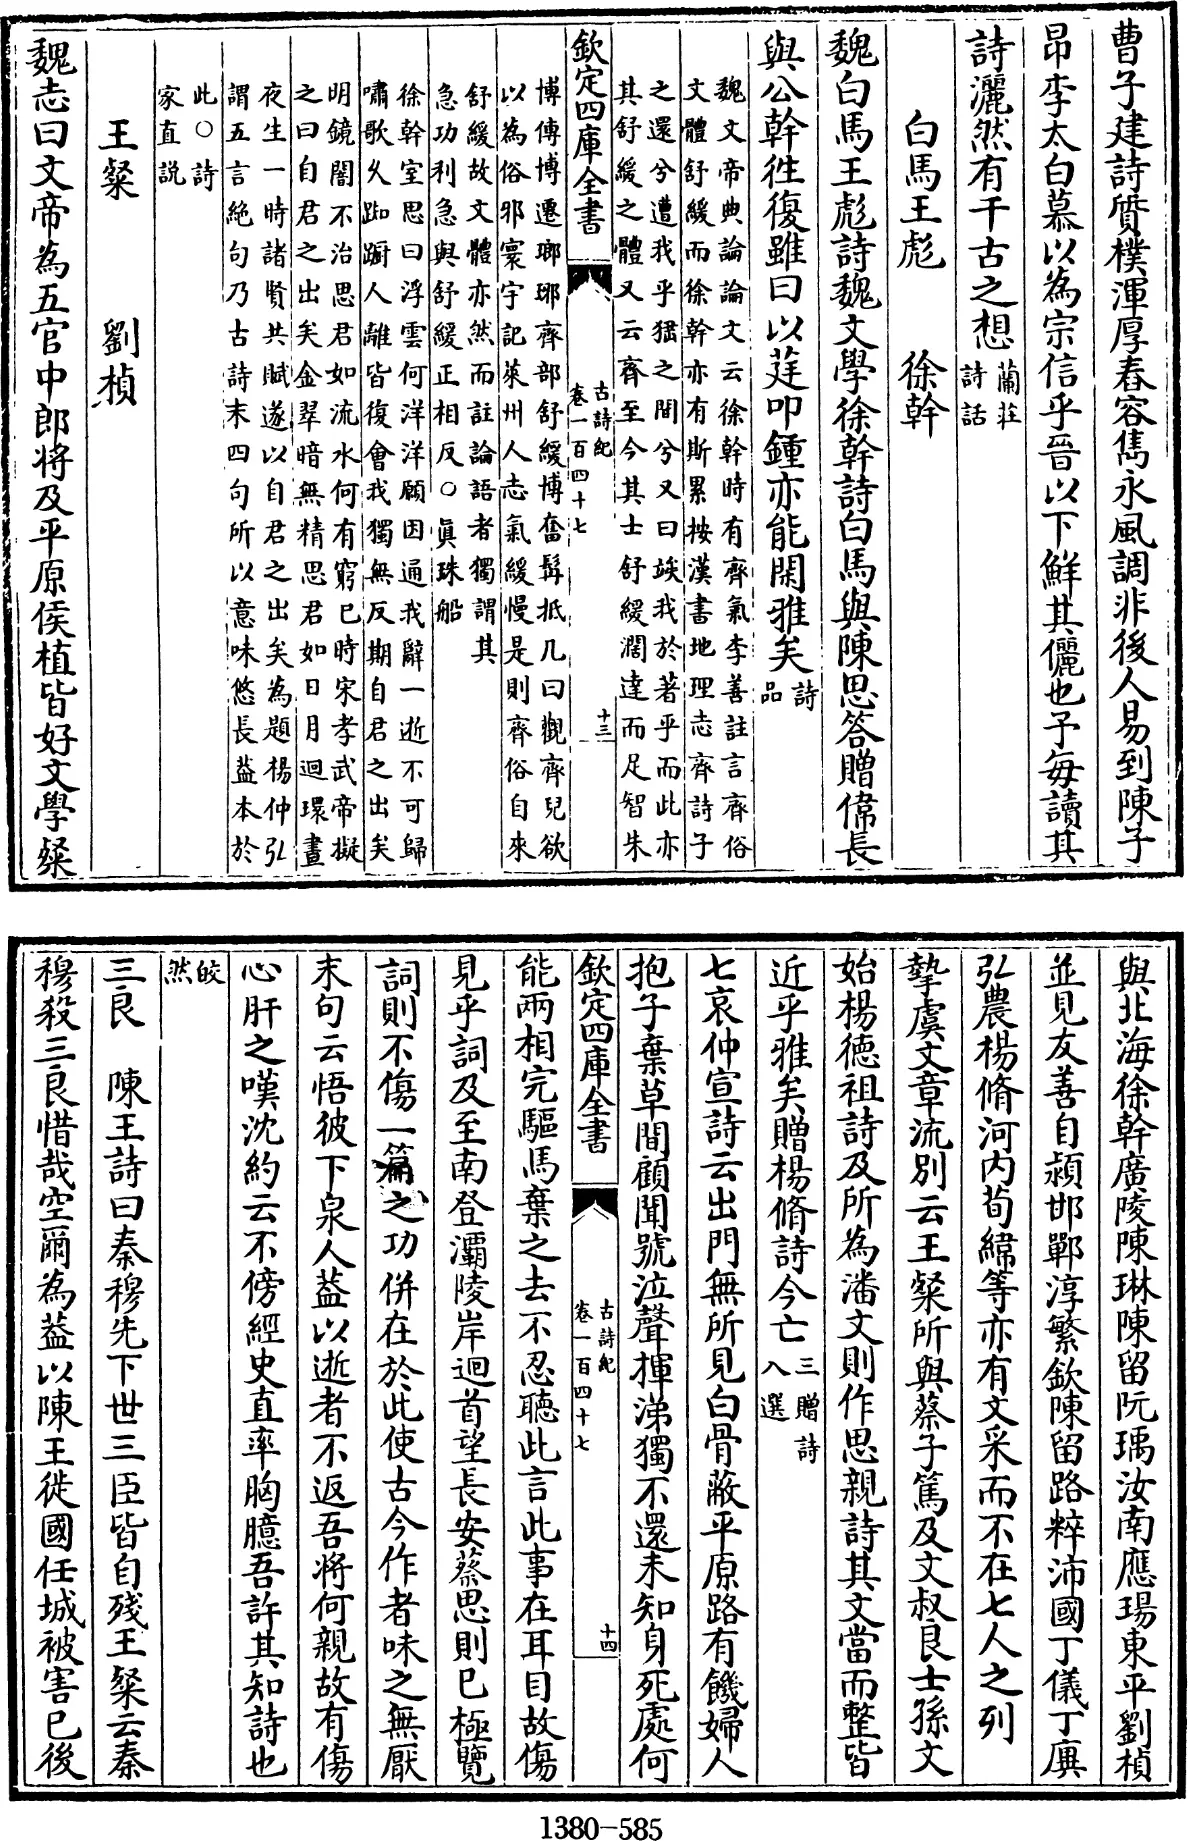 曹子建詩質樸渾厚舂容雋永風調非後人易到陳子
昂李太白慕以為宗信乎晉以下鮮其儷也予每讀其
詩灑然有千古之想 蘭莊
詩話
白馬王彪 徐幹
魏白馬王彪詩魏文學徐幹詩白馬與陳思答贈偉長
與公幹徃復雖曰以莛叩鍾亦能閑雅矣 詩
品
魏文帝典論論文云徐幹時有齊氣李善註言齊俗
文體舒緩而徐幹亦有斯累按漢書地理志齊詩子
之還兮遭我乎猺之間兮又曰竢我於著乎而此亦
其舒緩之體又云齊至今其士舒緩濶達而足智朱
欽定四庫全書
古詩紀
卷一百四十七
十三
博傅博遷瑯琊齊部舒緩博奮髯抵几曰觀齊兒欲
以為俗邪寰宇記萊州人志氣緩慢是則齊俗自來
舒緩故文體亦然而註論語者獨謂其
急功利急與舒緩正相反○真珠船
徐幹室思曰浮雲何洋洋願因通我辭一逝不可歸
嘯歌久踟蹰人離皆復會我獨無反期自君之出矣
明鏡闇不治思君如流水何有窮已時宋孝武帝擬
之曰自君之出矣金翠暗無精思君如日月迴環晝
夜生一時諸賢共賦遂以自君之出矣為題楊仲弘
謂五言絶句乃古詩末四句所以意味悠長葢本於
此○詩
家直説
王粲 劉楨
魏志曰文帝為五官中郎將及平原侯植皆好文學粲
與北海徐幹廣陵陳琳陳留阮瑀汝南應瑒東平劉楨
並見友善自潁邯鄲淳繁欽陳留路粹沛國丁儀丁廙
弘農楊脩河内荀緯等亦有文采而不在七人之列
摯虞文章流別云王粲所與蔡子篤及文叔良士孫文
始楊德祖詩及所為潘文則作思親詩其文當而整皆
近乎雅矣贈楊脩詩今亡 三贈詩
入選
七哀仲宣詩云出門無所見白骨蔽平原路有饑婦人
抱子棄草間顧聞號泣聲揮涕獨不還未知身死處何
欽定四庫全書
古詩紀
卷一百四十七
十四
能兩相完驅馬棄之去不忍聽此言此事在耳目故傷
見乎詞及至南登灞陵岸迴首望長安蔡思則已極覽
詞則不傷一篇之功併在於此使古今作者味之無厭
末句云悟彼下泉人葢以逝者不返吾將何親故有傷
心肝之嘆沈約云不傍經史直率胸臆吾許其知詩也
皎
然
三良 陳王詩曰秦穆先下世三臣皆自殘王粲云秦
穆殺三良惜哉空爾為葢以陳王徙國任城被害已後
1380-585